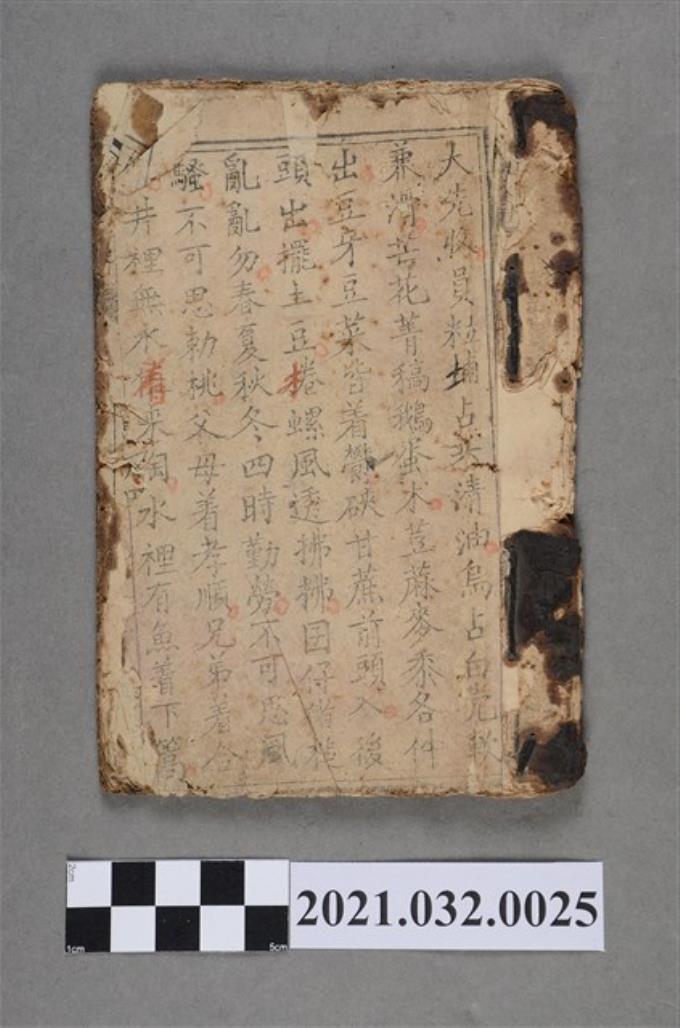 大先收員粒埔占尖清油烏占白売軟
兼濟苦花菁稿鵝蛋朮荳蔴麥黍各件
出豆牙豆菜皆着鬱硤甘蔗前頭入後
頭出擺土豆捲螺風透拂拂因仔
亂亂勿春夏秋冬四時勤勞不可惹風
騷不可思勅桃父母着孝順兄弟着合
井裡無水着來陶水裡有魚着下篙
2021.032.0025
2cm
1cm
5cm